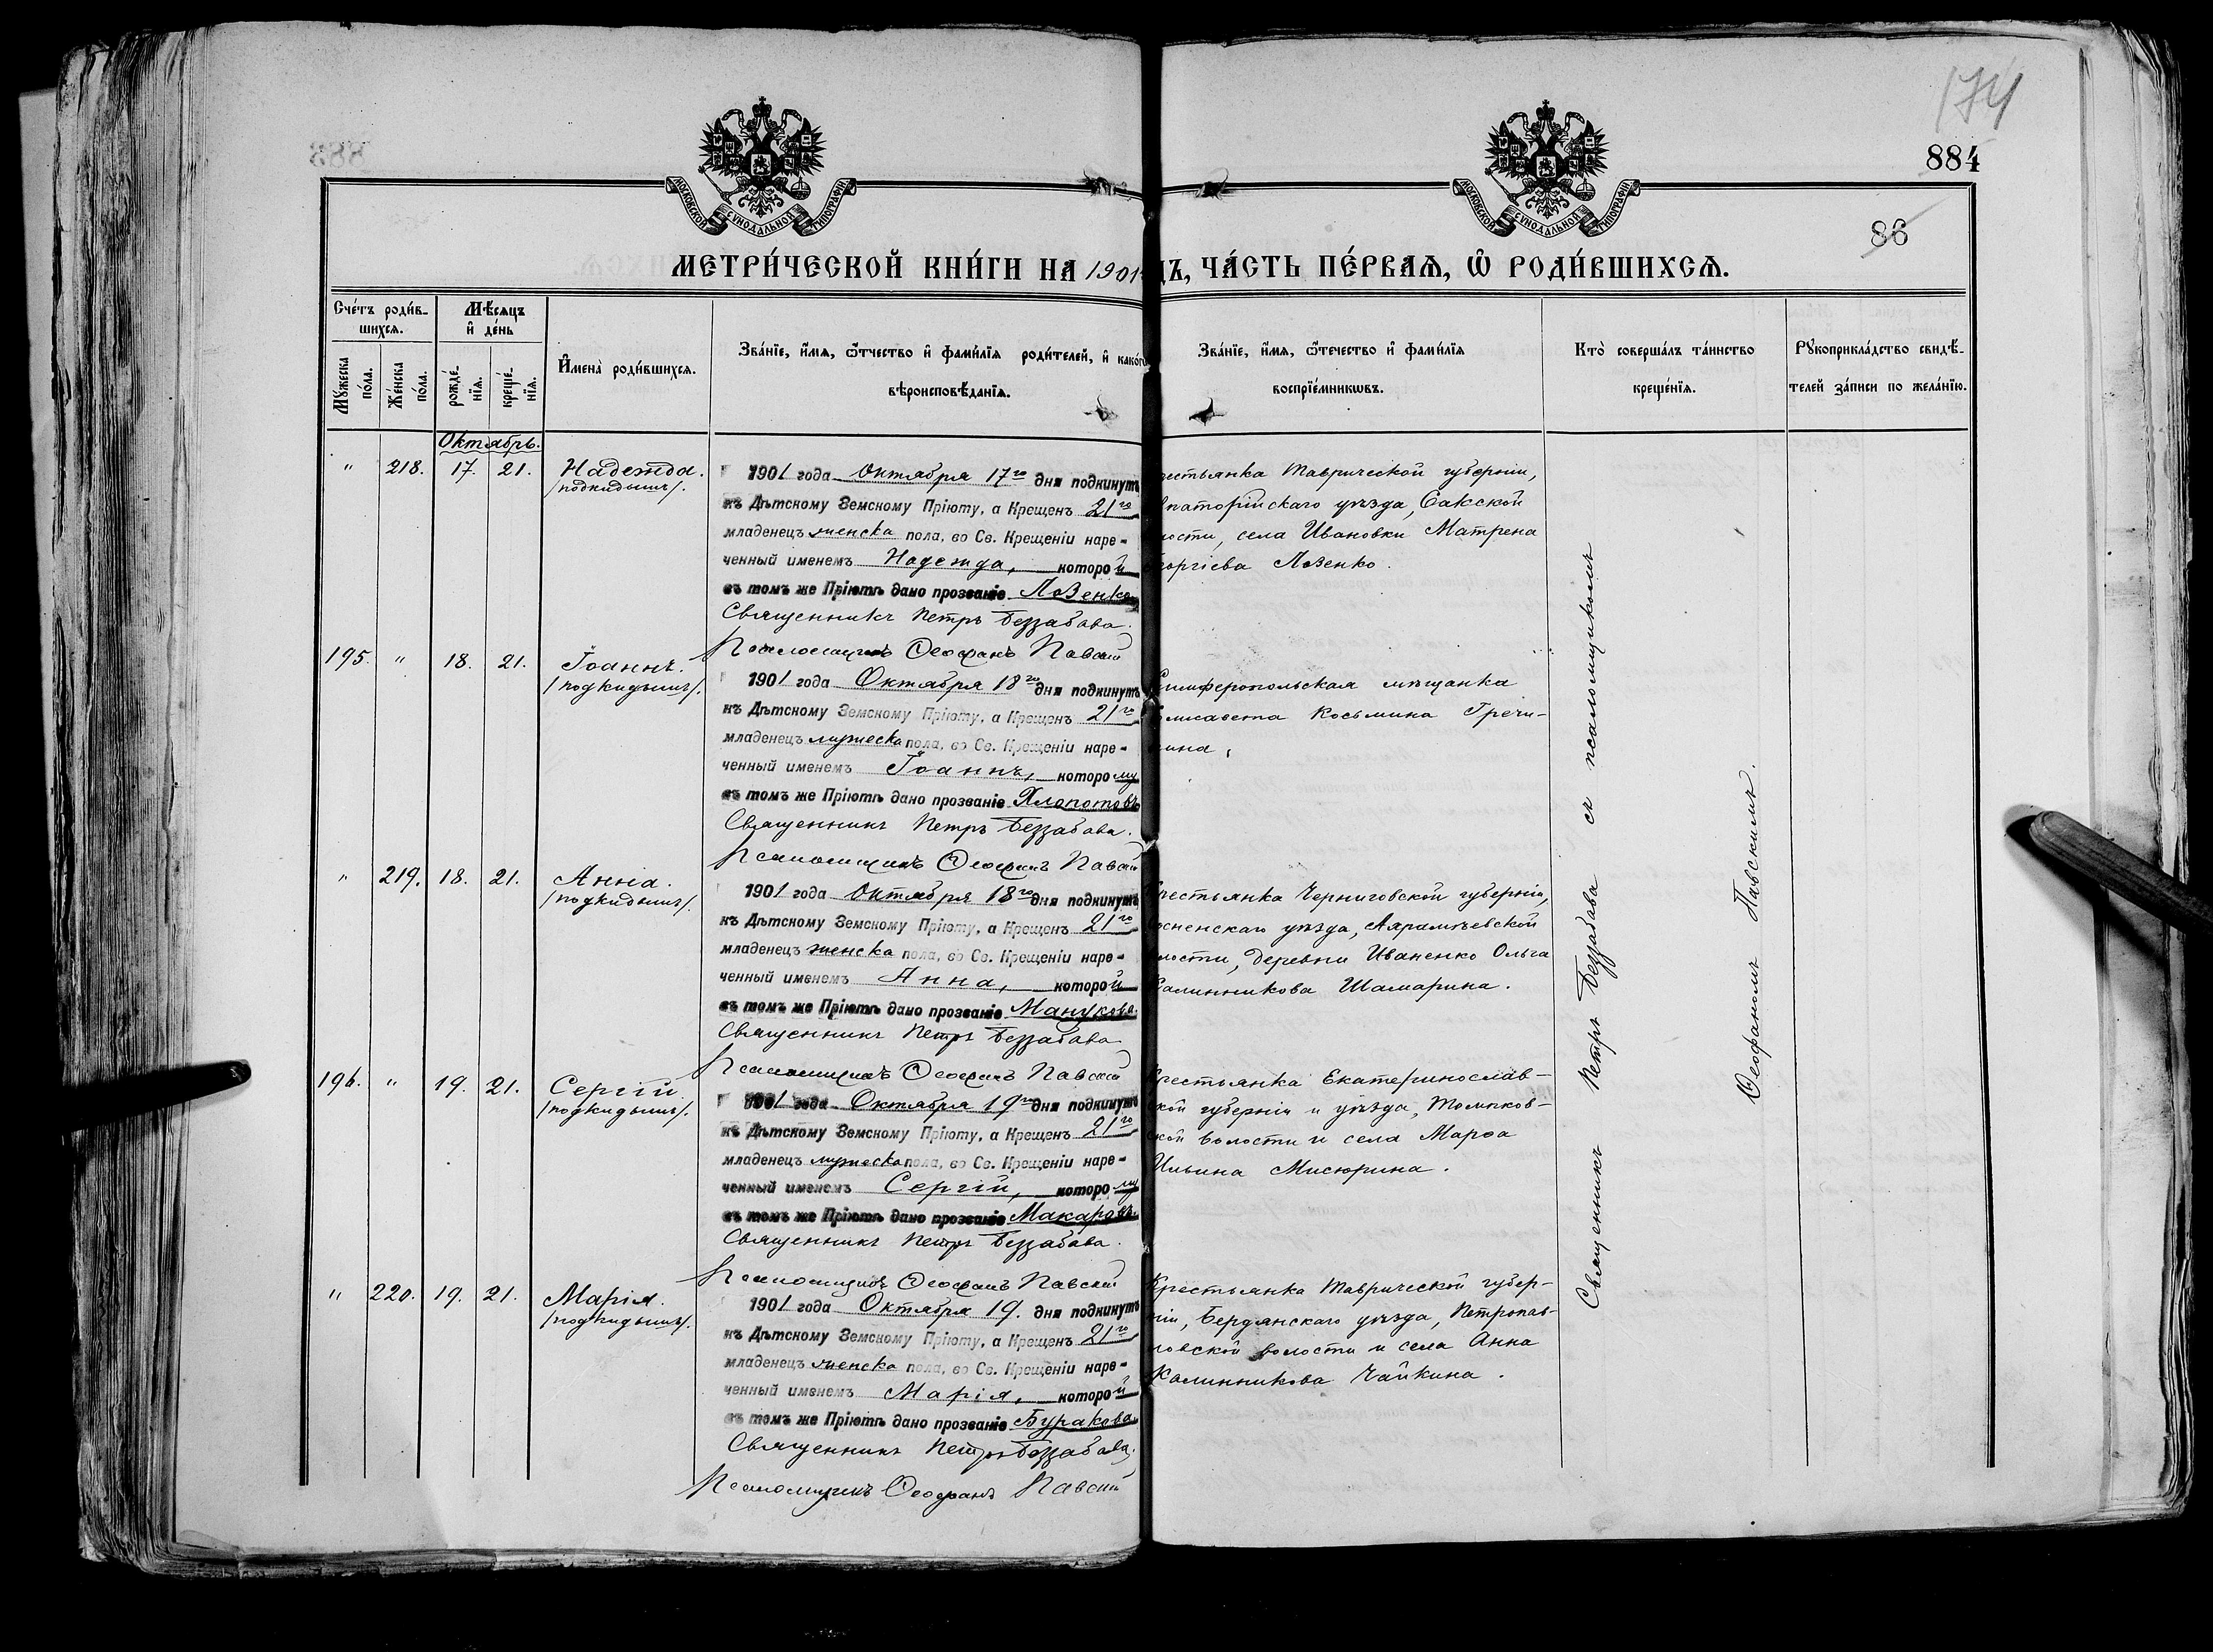 174
884
86
МОСКОВСКОЙ СѴНОДАЛЬНОЙ ТИПОГРАФІИ
МОСКОВСКОЙ СѴНОДАЛЬНОЙ ТИПОГРАФІИ
МЕТРИ́ЧЕСКОЙ КНИ́ГИ НА 1901
ДЪ, ЧА́СТЬ ПЕ́РВАЯ, Ѿ РОДИ́ВШИХСЯ.
Сче́тъ роди́в-
шихся.
Мꙋжеска
по́ла.
Же́нска
по́ла.
Мѣсяцъ
и҆ де́нь
рожде́-
нїя.
креще́-
нїя.
И҆мена̀ роди́вшихся.
Зва́нїе, и҆́мя, ѻ҆́тчество и҆ фами́лїя роди́телей, и҆ како́гѡ
вѣроисповѣ́данїя.
Зва́нїе, и҆́мя, ѻ҆́течество и҆ фами́лїя
воспрїе́мникѡвъ.
Кто̀ соверша́лъ та́инство
креще́нїя.
Рꙋкоприкла́дство свидѣ́-
телей за́писи по жела́нїю.
Октябрь.
" 218. 17. 21. Надежда.
/подкидышъ/.
1901 года Октября 17го дня подкинутъ
къ Дѣтскому Земскому Пріюту, а Крещенъ 21го
младенецъ женска пола, во Св. Крещеніи наре-
ченный именемъ Надежда, которой
въ томъ же Пріютѣ дано прозваніе Лозенко
Священникъ Петръ Беззабава.
Псаломщикъ Ѳеофанъ Павскій
рестьянка Таврической губерніи,
впаторійскаго уѣзда, Сакской
лости, села Ивановки Матрена
оргіева Лозенко.
195. " 18. 21. Іоаннъ.
/подкидышъ/.
1901 года Октября 18го дня подкинутъ
къ Дѣтскому Земскому Пріюту, а Крещенъ 21го
младенецъ мужеска пола, во Св. Крещеніи наре-
ченный именемъ Іоаннъ, которому
въ томъ же Пріютѣ дано прозваніе Хлопотовъ
Священникъ Петръ Беззабава.
Псаломщикъ Ѳеофанъ Павскій
Симферопольская мѣщанка
Елисавета Косьмина Гречи-
шкина.
" 219. 18. 21. Анна.
/подкидышъ/.
1901 года Октября 18го дня подкинутъ
къ Дѣтскому Земскому Пріюту, а Крещенъ 21го
младенецъ женска пола, во Св. Крещеніи наре-
ченный именемъ Анна, которой
въ томъ же Пріютѣ дано прозваніе Манукова
Священникъ Петръ Беззабава
Псаломщикъ Ѳеофанъ Павскій
рестьянка Черниговской губерніи,
осненскаго уѣзда,
лости, деревни Иваненко Ольга
Калинникова Шамарина.
196. " 19. 21. Сергій
/подкидышъ/.
1901 года Октября 19го дня подкинутъ
къ Дѣтскому Земскому Пріюту, а Крещенъ 21го
младенецъ мужеска пола, во Св. Крещеніи наре-
ченный именемъ Сергій, которому
въ томъ же Пріютѣ дано прозваніе Макаровъ
Священникъ Петръ Беззабава.
Псаломщикъ Ѳеофанъ Павскій
Крестьянка Екатеринослав-
ской губерніи и уѣзда, Томаков-
ской волости и села Марѳа
Ильина Мисюрина.
" 220. 19. 21. Марія.
/подкидышъ/.
1901 года Октября 19. дня подкинутъ
къ Дѣтскому Земскому Пріюту, а Крещенъ 21го
младенецъ женска пола, во Св. Крещеніи наре-
ченный именемъ Марія, которой
въ томъ же Пріютѣ дано прозваніе Буракова
Священникъ Петръ Беззабава.
Псаломщикъ Ѳеофанъ Павскій
Крестьянка Таврической губер-
ніи, Бердянскаго уѣзда, Петропав-
ловской волости и села Анна
Калинникова Чайкина.
Священникъ Петръ Беззабава съ псаломщикомъ
Ѳеофаномъ Павскимъ.